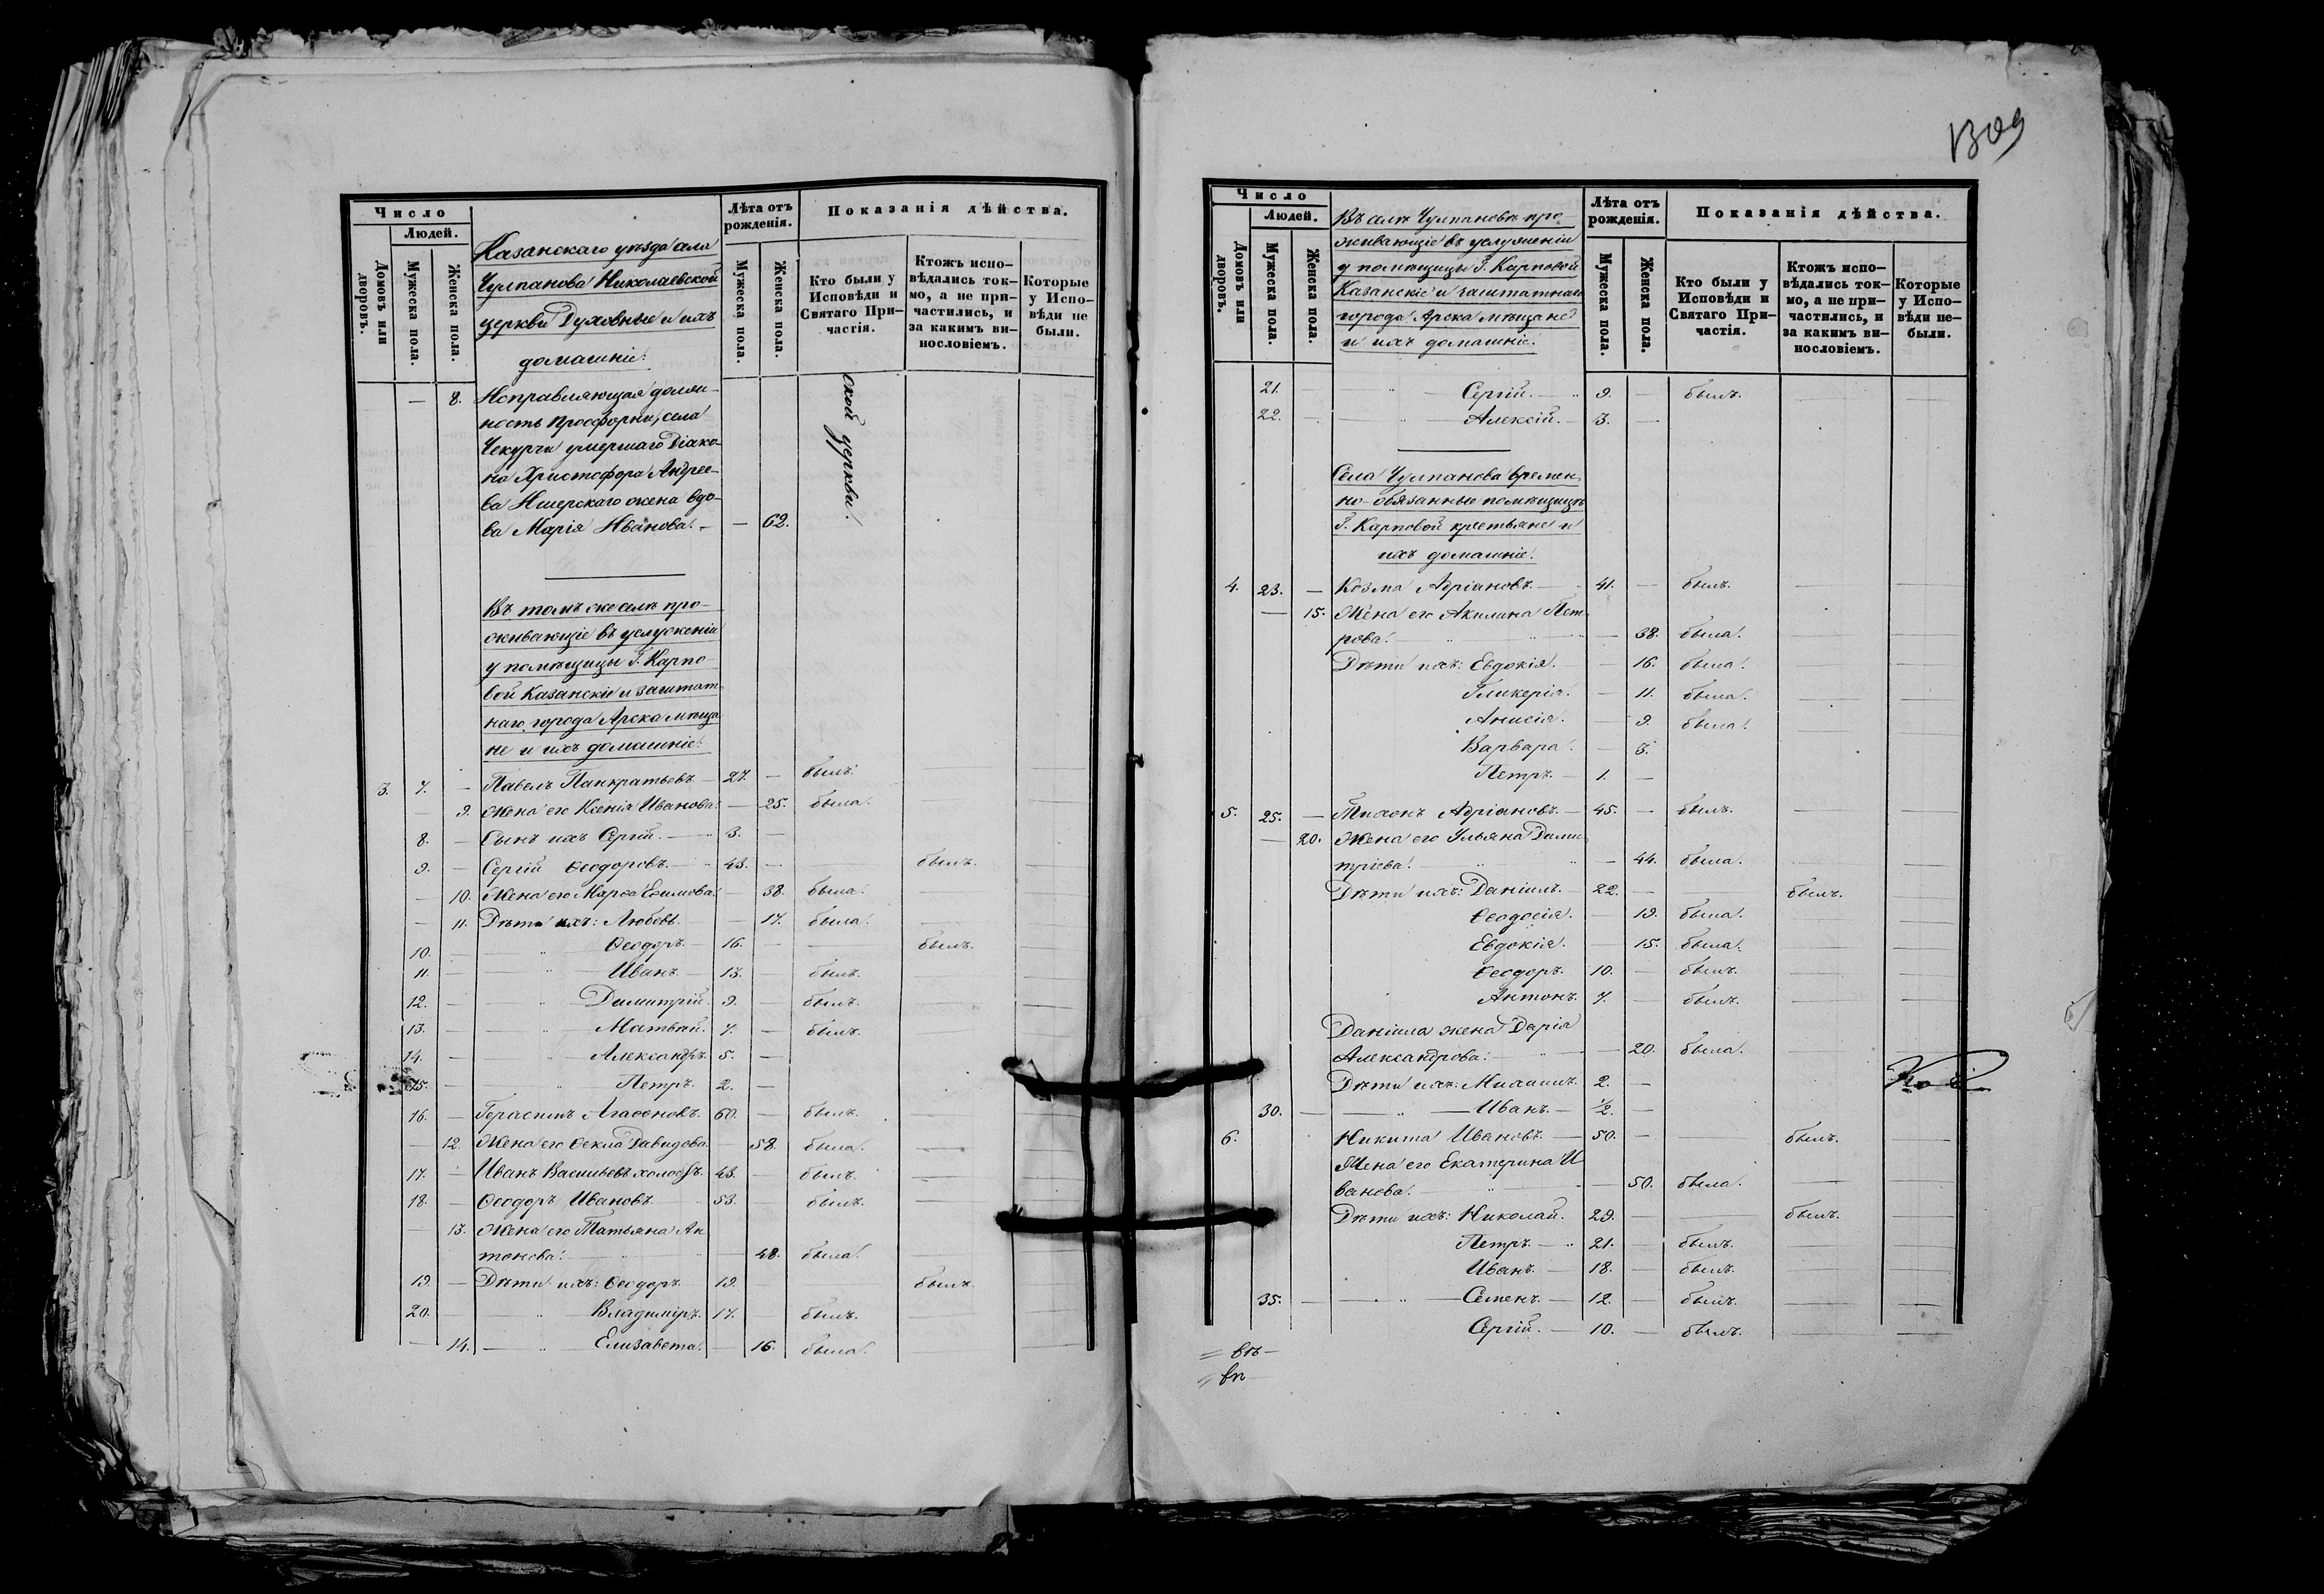 Число
Людей.
Домовъ или дворовъ.
Мужеска пола.
Женска пола.
Казанскаго уѣзда села
Чулпанова Николаевской
церкви Духовные и ихъ
домашніе:
Лѣта отъ рожденія.
Мужеска пола.
Женска пола.
Показанія дѣйства.
Кто были у Исповѣди и Святаго Причастія.
Ктожъ исповѣдались токмо, а не причастились, и за какимъ винословіемъ.
Которые у Исповѣди не были.
— 8. Исправляющая долж-
ность просфорни, села
Чекурчи умершаго Діако-
на Христофора Андрее-
ва Ишерскаго жена вдо-
ва Марія Иванова. — — 62.
ской церкви.
Въ томъ же селѣ про-
живающіе въ услуженіи
у помѣщицы Г. Карпо-
вой Казанскіе и заштат-
наго города Арска мѣща
не и ихъ домашніе:
3. 7. — Павелъ Панкратьевъ — 27. — былъ.
— 9. Жена его Ксенія Иванова. — 25. была.
8. — Сынъ ихъ Сергій. — 3. —
9. — Сергій Ѳеодоровъ. — 43. — — былъ.
— 10. Жена его Марѳа Еѳимова. — 38. была.
— 11. Дѣти ихъ: Любовь. — — 17. была.
10. — Ѳеодоръ. — 16. — — былъ.
11. — Иванъ. — 13. — былъ.
12. — Димитрій. 9. — былъ.
13. — Матвѣй. 7. — былъ.
14. — Александръ. 5. —
15. — Петръ. 2. —
16. — Герасимъ Агаѳоновъ. 60. — былъ.
— 12. Жена его Ѳекла Давидова. — 58. была.
17. — Иванъ Васильевъ холостъ. 43. — былъ.
18. — Ѳеодоръ Ивановъ. 53. — былъ.
— 13. Жена его Татьяна Ан
тонова. — 48. была.
19. — Дѣти ихъ: Ѳеодоръ. — 19. — — былъ.
20. — Владиміръ. 17. — былъ.
— 14. — Елизавета. — 16. была.
1309
Число
Людей.
Домовъ или дворовъ.
Мужеска пола.
Женска пола.
Въ селѣ Чулпановѣ про-
живающіе въ услуженіи
у помѣщицы Г. Карповой
Казанскіе и заштатнаго
города Арска мѣщане
и ихъ домашніе.
Лѣта отъ рожденія.
Мужеска пола.
Женска пола.
Показанія дѣйства.
Кто были у Исповѣди и Святаго Причастія.
Ктожъ исповѣдались токмо, а не причастились, и за какимъ винословіемъ.
Которые у Исповѣди небыли.
21. — Сергій. — 9. — былъ.
22. — Алексій. — 3. —
Села Чулпанова времен-
но-обязанные помѣщицѣ
Г. Карповой крестьяне и
ихъ домашніе.
4. 23. — Козма Адріановъ. — 41. — былъ.
— 15. Жена его Акилина Пет-
рова. — 38. была.
Дѣти ихъ: Евдокія. — — 16. была.
Гликерія. — 11. была.
Анисія. — 9. была.
Варвара. — 3.
Петръ. — 1. —
5. 25. — Тихонъ Адріановъ. — 45. — былъ.
— 20. Жена его Ульяна Дими
тріева. — 44. была.
Дѣти ихъ: Даніилъ. — 22. — — былъ.
Ѳеодосія. — 19. была.
Евдокія. — 15. была.
Ѳеодоръ. 10. — былъ.
Антонъ. 7. — былъ.
Даніила жена Дарія
Александрова. — 20. была.
Дѣти ихъ: Михаилъ. 2. —
30. — Иванъ. — ½. —
6. Никита Ивановъ. — 50. — — былъ.
Жена его Екатерина И
ванова. — 50. была.
Дѣти ихъ: Николай. 29. — — былъ.
Петръ. — 21. — былъ.
Иванъ. — 18. — былъ.
35. — Семенъ. — 12. — былъ.
Сергій. — 10. — былъ.